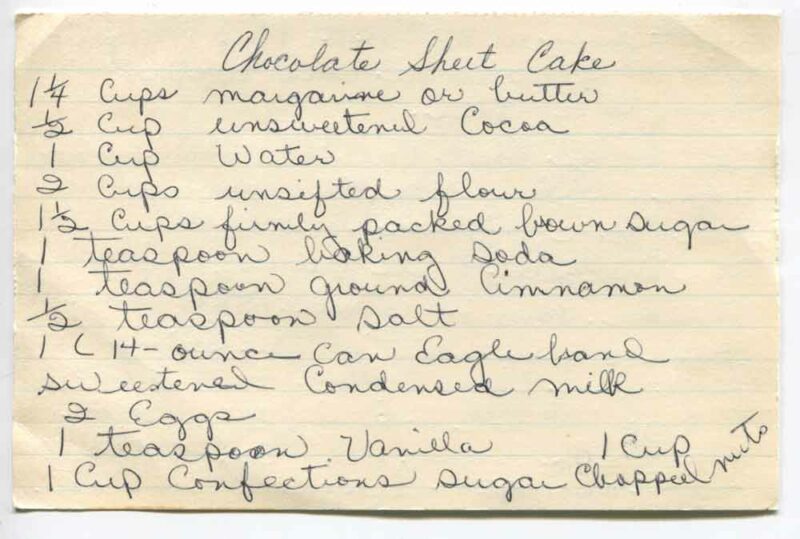 Chocolate Sheet Cake
1 1/4 Cups margarine or butter
1/2 Cup unsweetened Cocoa
1 Cup Water
2 Cups unsifted flour
1 1/2 Cups firmly packed brown sugar
1 teaspoon baking soda
1 teaspoon ground Cinnamon
1/2 teaspoon salt
1 ( 14-ounce can Eagle band
sweetened Condensed milk
2 Eggs
1 teaspoon Vanilla 1 Cup
1 Cup Confections sugar Chopped nuts